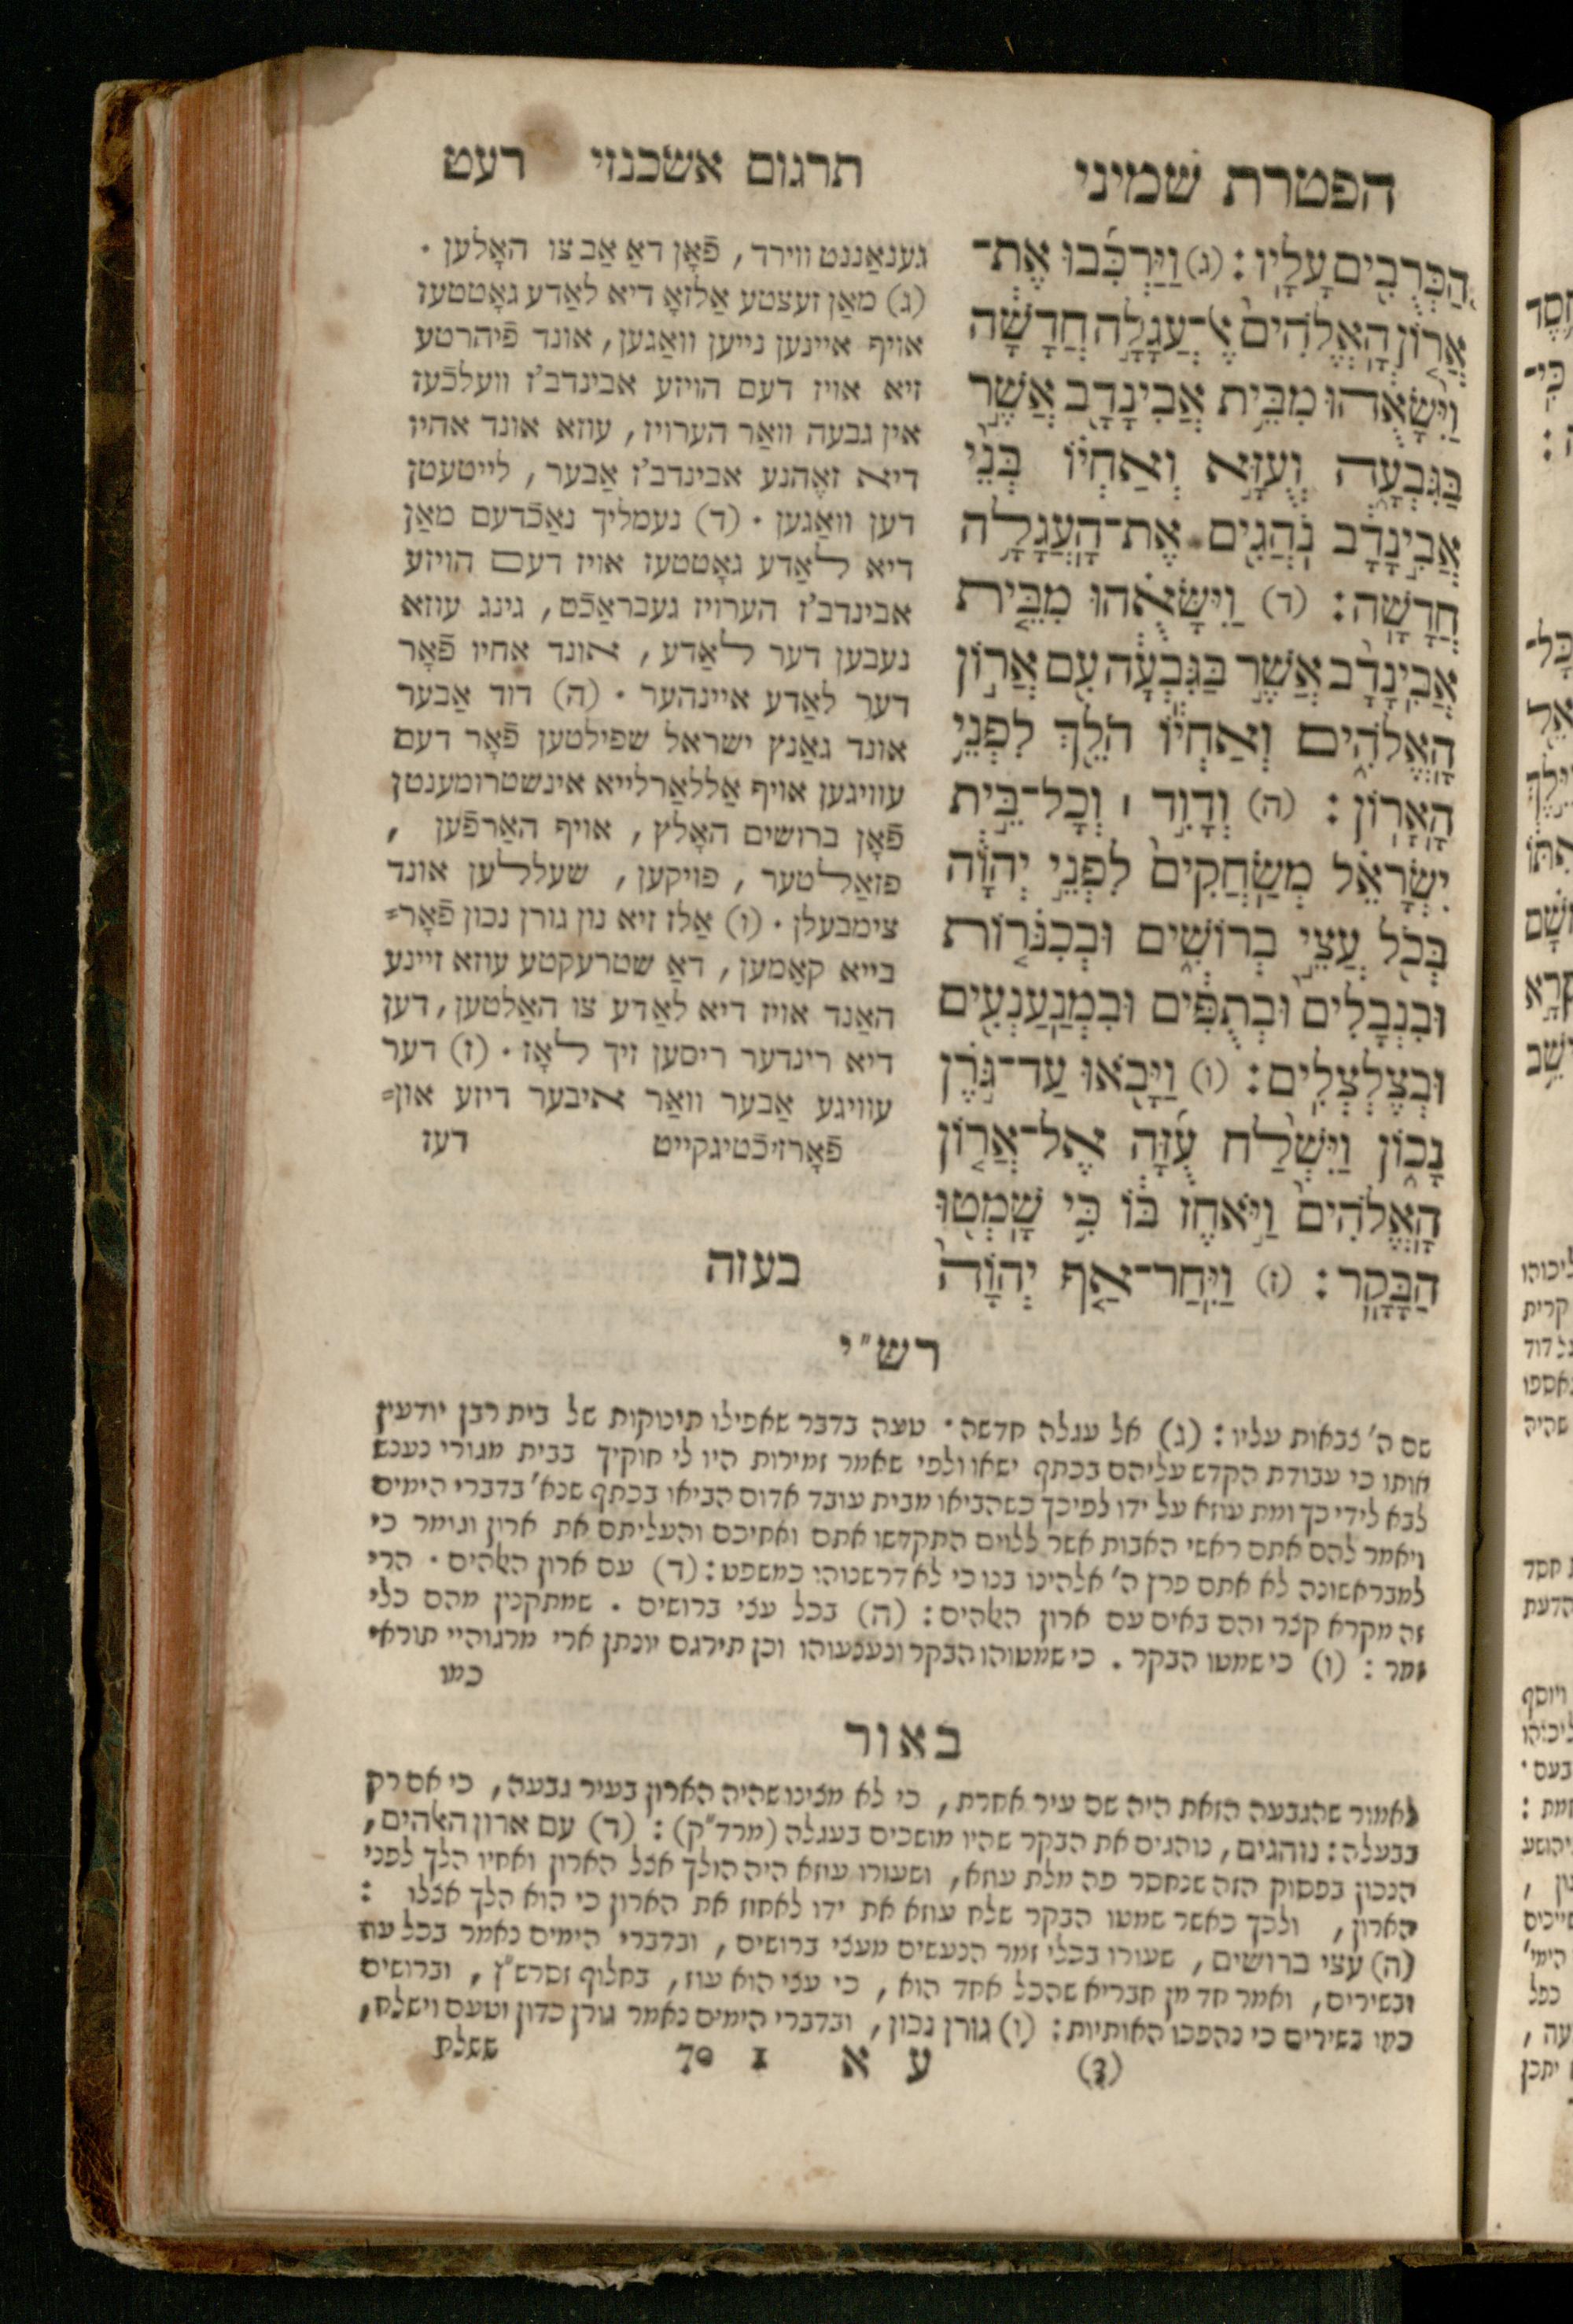 הפטרת שמיני
תרגום אשכנזי רעט
הַכְּרֻבִ֖ים עָלָֽיו׃ (ג) וַיַּרְכִּ֜בוּ אֶת־
אֲר֤וֹן הָֽאֱלֹהִים֙ אֶל־עֲגָלָ֣ה חֲדָשָׁ֔ה
וַיִּ֨שָּׂאֻ֔הוּ מִבֵּ֥ית אֲבִינָדָ֖ב אֲשֶׁ֣ר
בַּגִּבְעָ֑ה וְעֻזָּ֣א וְאַחְי֗וֹ בְּנֵי֙
אֲבִ֣ינָדָ֔ב נֹֽהֲגִ֖ים אֶת־הָֽעֲגָלָ֥ה
חֲדָשָֽׁה׃ (ד) וַיִּשָּׂאֻ֗הוּ מִבֵּ֤ית
אֲבִֽינָדָב֙ אֲשֶׁ֣ר בַּגִּבְעָ֔ה עִ֖ם אֲר֣וֹן
הָֽאֱלֹהִ֑ים וְאַחְי֕וֹ הֹלֵ֖ךְ לִפְנֵ֥י
הָֽאָרֽוֹן׃ (ה) וְדָוִ֣ד ׀ וְכָל־בֵּ֣ית
יִשְׂרָאֵ֗ל מְשַֽׂחֲקִים֙ לִפְנֵ֣י יְהוָ֔ה
בְּכֹ֖ל עֲצֵ֣י בְרוֹשִׁ֑ים וּבְכִנֹּר֤וֹת
וּבִנְבָלִים֙ וּבְתֻפִּ֔ים וּבִמְנַֽעַנְעִ֖ים
וּבְצֶלְצֶלִֽים׃ (ו) וַיָּבֹ֖אוּ עַד־גֹּ֣רֶן
נָכ֑וֹן וַיִּשְׁלַ֨ח עֻזָּ֜ה אֶל־אֲר֤וֹן
הָֽאֱלֹהִים֙ וַיֹּ֣אחֶז בּ֔וֹ כִּ֥י שָֽׁמְט֖וּ
הַבָּקָֽר׃ (ז) וַיִּֽחַר־אַ֤ף יְהוָה֙
בעזה
גענאַננט ווירד, פֿאָן דאַ אַב צו האָלען.
(ג) מאַן זעצטע אַלזאָ דיא לאַדע גאָטטעז
אויף איינען נייען וואַגען, אונד פֿיהרטע
זיא אויז דעם הויזע אבינדב'ז וועלכֿעז
אין גבעה וואַר הערויז, עוזא אונד אחיו
דיא זאֶהנע אבינדב'ז אַבער, לייטעטן
דען וואַגען. (ד) נעמליך נאַכֿדעם מאַן
דיא לאַדע גאָטטעז אויז דעם הויזע
אבינדב'ז הערויז געבראַכֿט, גינג עוזא
נעבען דער לאַדע, אונד אחיו פֿאָר
דער לאַדע איינהער. (ה) דוד אַבער
אונד גאַנץ ישראל שפילטען פֿאָר דעם
עוויגען אויף אַללאַרלייא אינשטרומענטן
פֿאָן ברושים האָלץ, אויף האַרפֿען,
פזאַלטער, פויקען, שעללען אונד
צימבעלן. (ו) אַלז זיא נון גורן נכון פֿאָר=
בייא קאַמען, דאַ שטרעקטע עוזא זיינע
האַנד אויז דיא לאַדע צו האַלטען, דען
דיא רינדער ריסען זיך לאָז. (ז) דער
עוויגע אַבער וואַר איבער דיזע און=
פֿאָרזיכֿטיגקייט דעז
רש"י
שם ה' צבאות עליו: (ג) אל עגלה חדשה. טעה בדבר שאפילו תינוקות של בית רבן יודעין
אותו כי עבודת הקדש עליהם בכתף ישאו ולפי שאמר זמירות היו לי חוקיך בבית מגורי נענש
לבא לידי כך ומת עוזא על ידו לפיכך כשהביאו מבית עובד אדום הביאו בכתף שנא' בדברי הימים
ויאמר להם אתם ראשי האבות אשר ללוים התקדשו אתם ואחיכם והעליתם את ארון וגומר כי
למבראשונה לא אתם פרץ ה' אלהינו בנו כי לא דרשנוהו כמשפט: (ד) עם ארון האלהים. הרי
זה מקרא קצר והם באים עם ארון האלהים: (ה) בכל עצי ברושים. שמתקנין מהם כלי
זמר: (ו) כי שמטו הבקר. כי שמטוהו הבקר ונענעוהו וכן תירגם יונתן ארי מרגוהיי תוראי
כמו
באור
לאמור שהגבעה הזאת היה שם עיר אחרת, כי לא מצינו שהיה הארון בעיר גבעה, כי אם רק
בבעלה: נוהגים, נוהגים את הבקר שהיו מושכים בעגלה (מרד"ק): (ד) עם ארון האלהים,
הנכון בפסוק הזה שנחסר פה מלת עוזא, ושעורו עוזא היה הולך אצל הארון ואחיו הלך לפני
הארון, ולכך כאשר שמטו הבקר שלח עוזא את ידו לאחוז את הארון כי הוא הלך אצלו:
(ה) עצי ברושים, שעורו בכלי זמר הנעשים מעצי ברושים, ובדברי הימים נאמר בכל עוז
ובשירים, ואמר חד מן חבריא שהכל אחד הוא, כי עצי הוא עוז, בחלוף זסרש"ץ, וברושים
כמו בשירים כי נהפכו האותיות: (ו) גורן נכון, ובדברי הימים נאמר גורן כדון וטעם וישלח,
ששלח
(ד) ע א 1 70